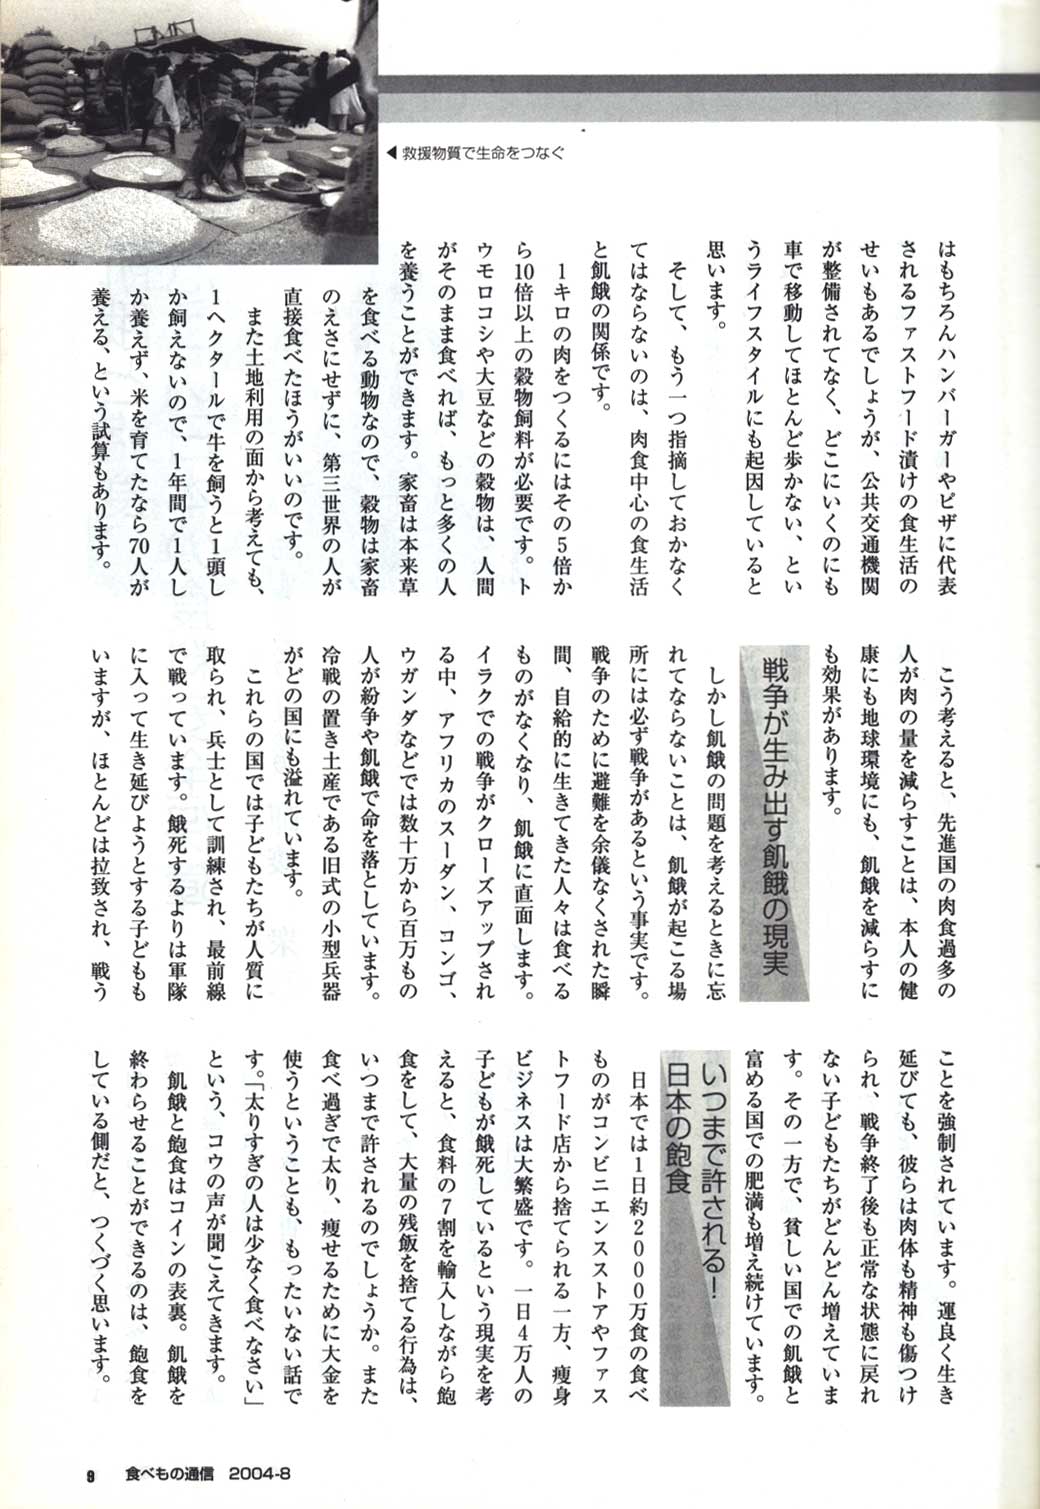 ◀救援物質で生命をつなぐ
はもちろんハンバーガーやピザに代表
されるファストフード漬けの食生活の
せいもあるでしょうが、公共交通機関
が整備されてなく、どこにいくのにも
車で移動してほとんど歩かない、とい
うライフスタイルにも起因していると
思います。
そして、もう一つ指摘しておかなく
てはならないのは、肉食中心の食生活
と飢餓の関係です。
1キロの肉をつくるにはその5倍か
ら10倍以上の穀物飼料が必要です。ト
ウモロコシや大豆などの穀物は、人間
がそのまま食べれば、もっと多くの人
を養うことができます。家畜は本来草
を食べる動物なので、穀物は家畜
のえさにせずに、第三世界の人が
直接食べたほうがいいのです。
また土地利用の面から考えても、
1ヘクタールで牛を飼うと1頭し
か飼えないので、1年間で1人し
か養えず、米を育てたなら70人が
養える、という試算もあります。
こう考えると、先進国の肉食過多の
人が肉の量を減らすことは、本人の健
康にも地球環境にも、飢餓を減らすに
も効果があります。
戦争が生み出す飢餓の現実
しかし飢餓の問題を考えるときに忘
れてならないことは、飢餓が起こる場
所には必ず戦争があるという事実です。
戦争のために避難を余儀なくされた瞬
間、自給的に生きてきた人々は食べる
ものがなくなり、飢餓に直面します。
イラクでの戦争がクローズアップされ
る中、アフリカのスーダン、コンゴ、
ウガンダなどでは数十万から百万もの
人が紛争や飢餓で命を落としています。
冷戦の置き土産である旧式の小型兵器
がどの国にも溢れています。
これらの国では子どもたちが人質に
取られ、兵士として訓練され、最前線
で戦っています。餓死するよりは軍隊
に入って生き延びようとする子どもも
いますが、ほとんどは拉致され、戦う
ことを強制されています。運良く生き
延びても、彼らは肉体も精神も傷つけ
られ、戦争終了後も正常な状態に戻れ
ない子どもたちがどんどん増えていま
す。その一方で、貧しい国での飢餓と
富める国での肥満も増え続けています。
いつまで許される!
日本の飽食
日本では1日約2000万食の食べ
ものがコンビニエンスストアやファス
トフード店から捨てられる一方、痩身
ビジネスは大繁盛です。一日4万人の
子どもが餓死しているという現実を考
えると、食料の7割を輸入しながら飽
食をして、大量の残飯を捨てる行為は、
いつまで許されるのでしょうか。また
食べ過ぎで太り、痩せるために大金を
使うということも、もったいない話で
す。「太りすぎの人は少なく食べなさい」
という、コウの声が聞こえてきます。
飢餓と飽食はコインの表裏。飢餓を
終わらせることができるのは、飽食を
している側だと、つくづく思います。
9 食べもの通信 2004-8